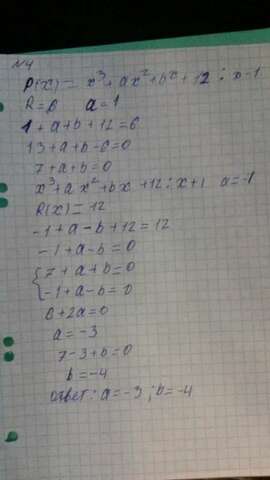 №4
P(x) = x³ + ax² + bx + 12 : x-1
R=6 a=1
1 + a + b + 12 = 6
13 + a + b - 6 = 0
7 + a + b = 0
x³ + a x² + bx + 12 : x+1 a=-1
R(x) = 12
-1 + a - b + 12 = 12
-1 + a - b = 0
{ 7 + a + b = 0
-1 + a - b = 0
6 + 2a = 0
a = -3
7 - 3 + b = 0
b = -4
ответ: a = -3; b = -4